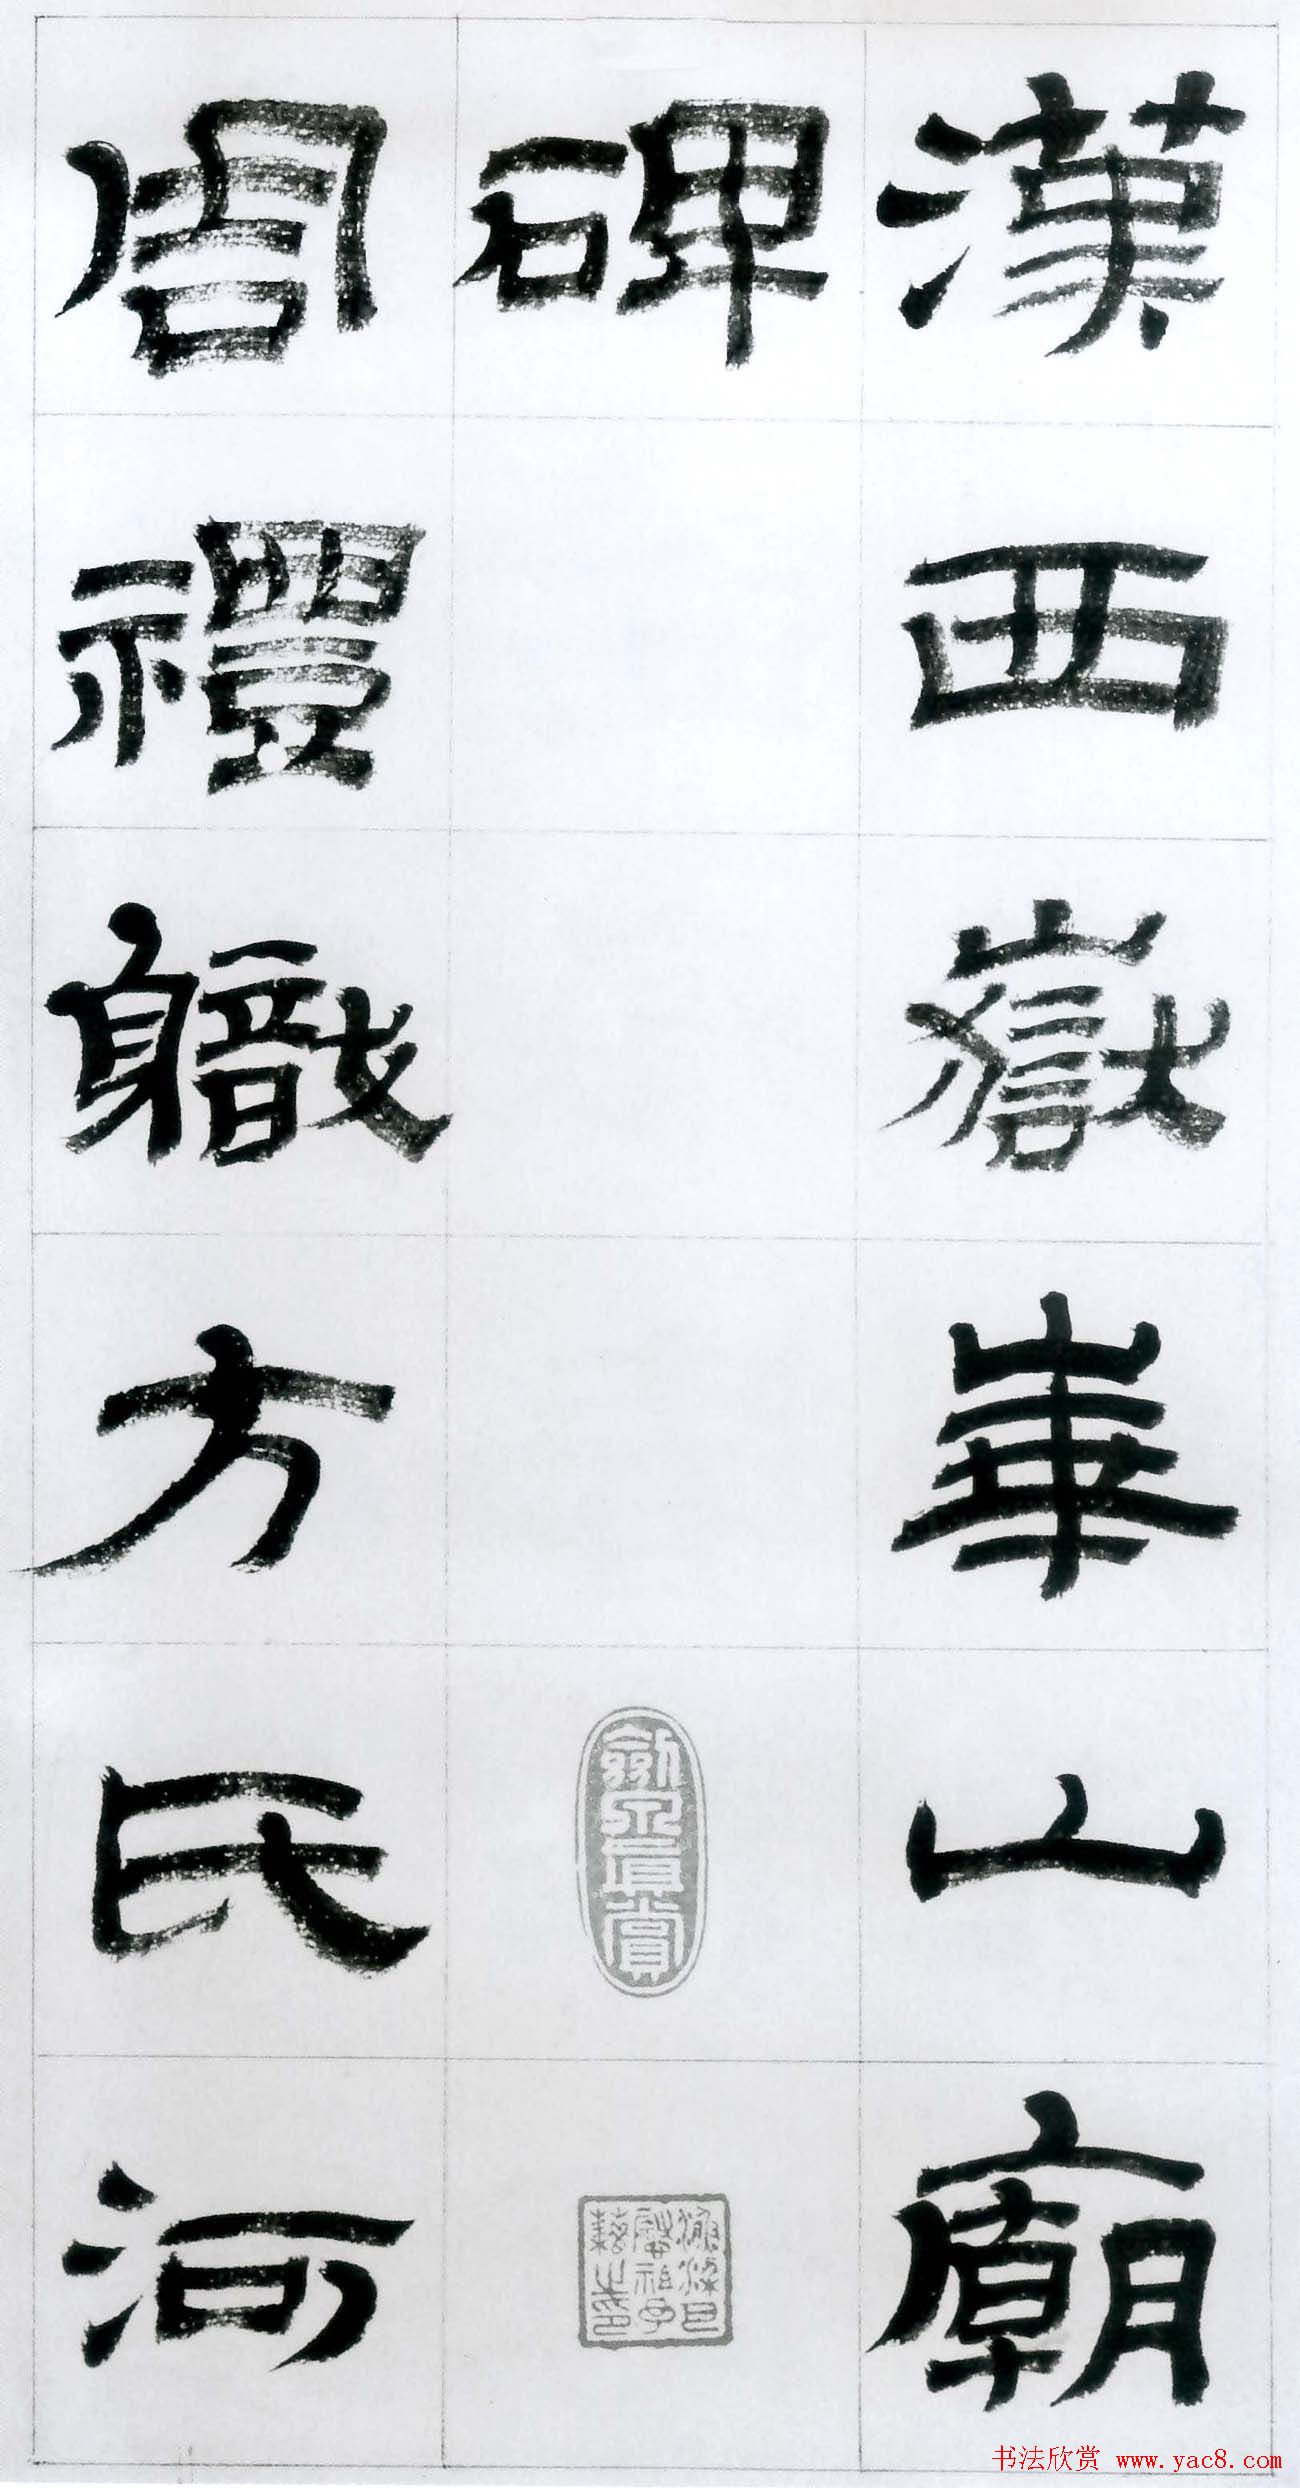 漢西嶽崋山廟
碑
周禮軄方氏河
书法欣赏 www.yac8.com